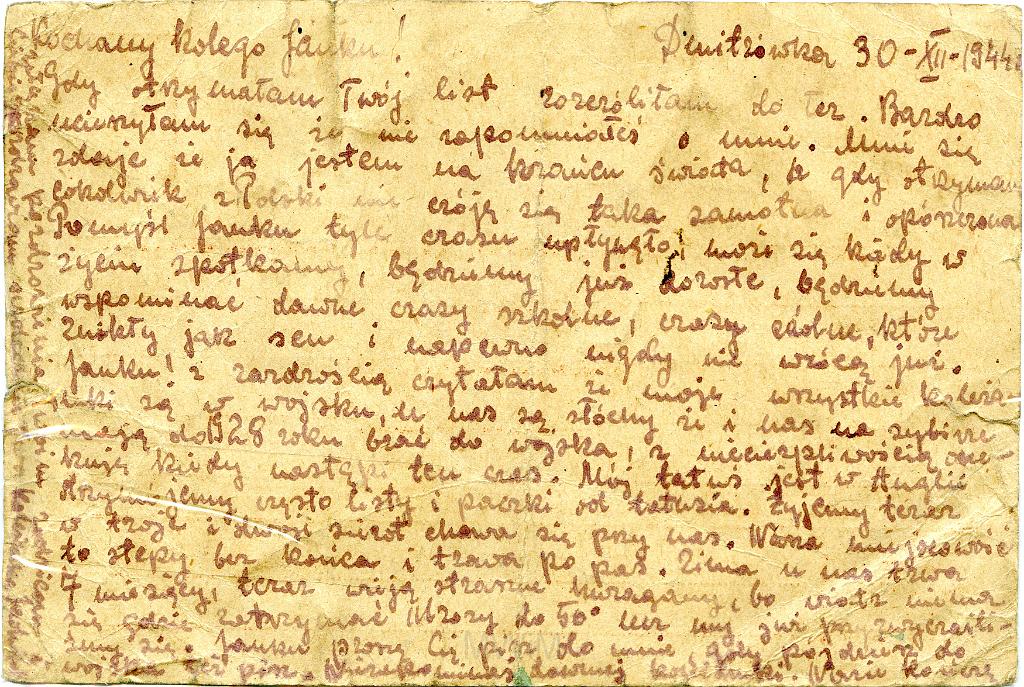 Kochany kolego Janku! Dmitrówka 30-XII-1944
Gdy otrzymałam Twój list rozczóliłam do łez. Bardzo
ucieszyłam się że nie zapomniałeś o mnie. Mnie się
zdaje że ja jestem na krańcu świata, że gdy otrzymam
cokolwiek z Polski nie czóję się taka samotna i opószczona
Pomyśl Janku tyle czasu upłynęło, może się kiedy w
życiu spotkamy, będziemy już dorosłe, będziemy
wspominać dawne czasy szkolne, czasy które
znikły jak sen i napewno nigdy nie wrócą już.
Janku! z zazdrością czytałam że moje wszystkie koleża
nki są w wojsku, u nas są słóchy że i nas na sybirze
mają do 1928 roku brać do wojska, z niecierpliwością ocze-
kuję kiedy nastąpi ten czas. Mój tatuś jest w Anglii
otrzymujemy często listy i paczki od tatusia. Żyjemy teraz
w troje i dwoje sierót chowa się przy nas. Nasza miejscowość
to stepy bez końca i trawa po pas. Zima u nas trwa
7 miesięcy, teraz wiją straszne huragany, bo wiatr niema
się gdzie zatrzymać Mrozy do lecz my już przyzwyczaili-
śmy się. Janku proszę Cię pisz do mnie, gdy pójdziesz do
wojska też pisz. dawnej koleżanki. kończę